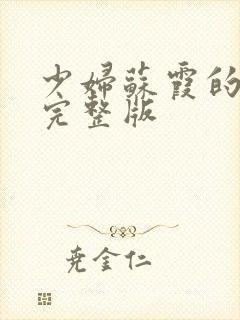 少婦蘇霞的
完整版
尧金仁